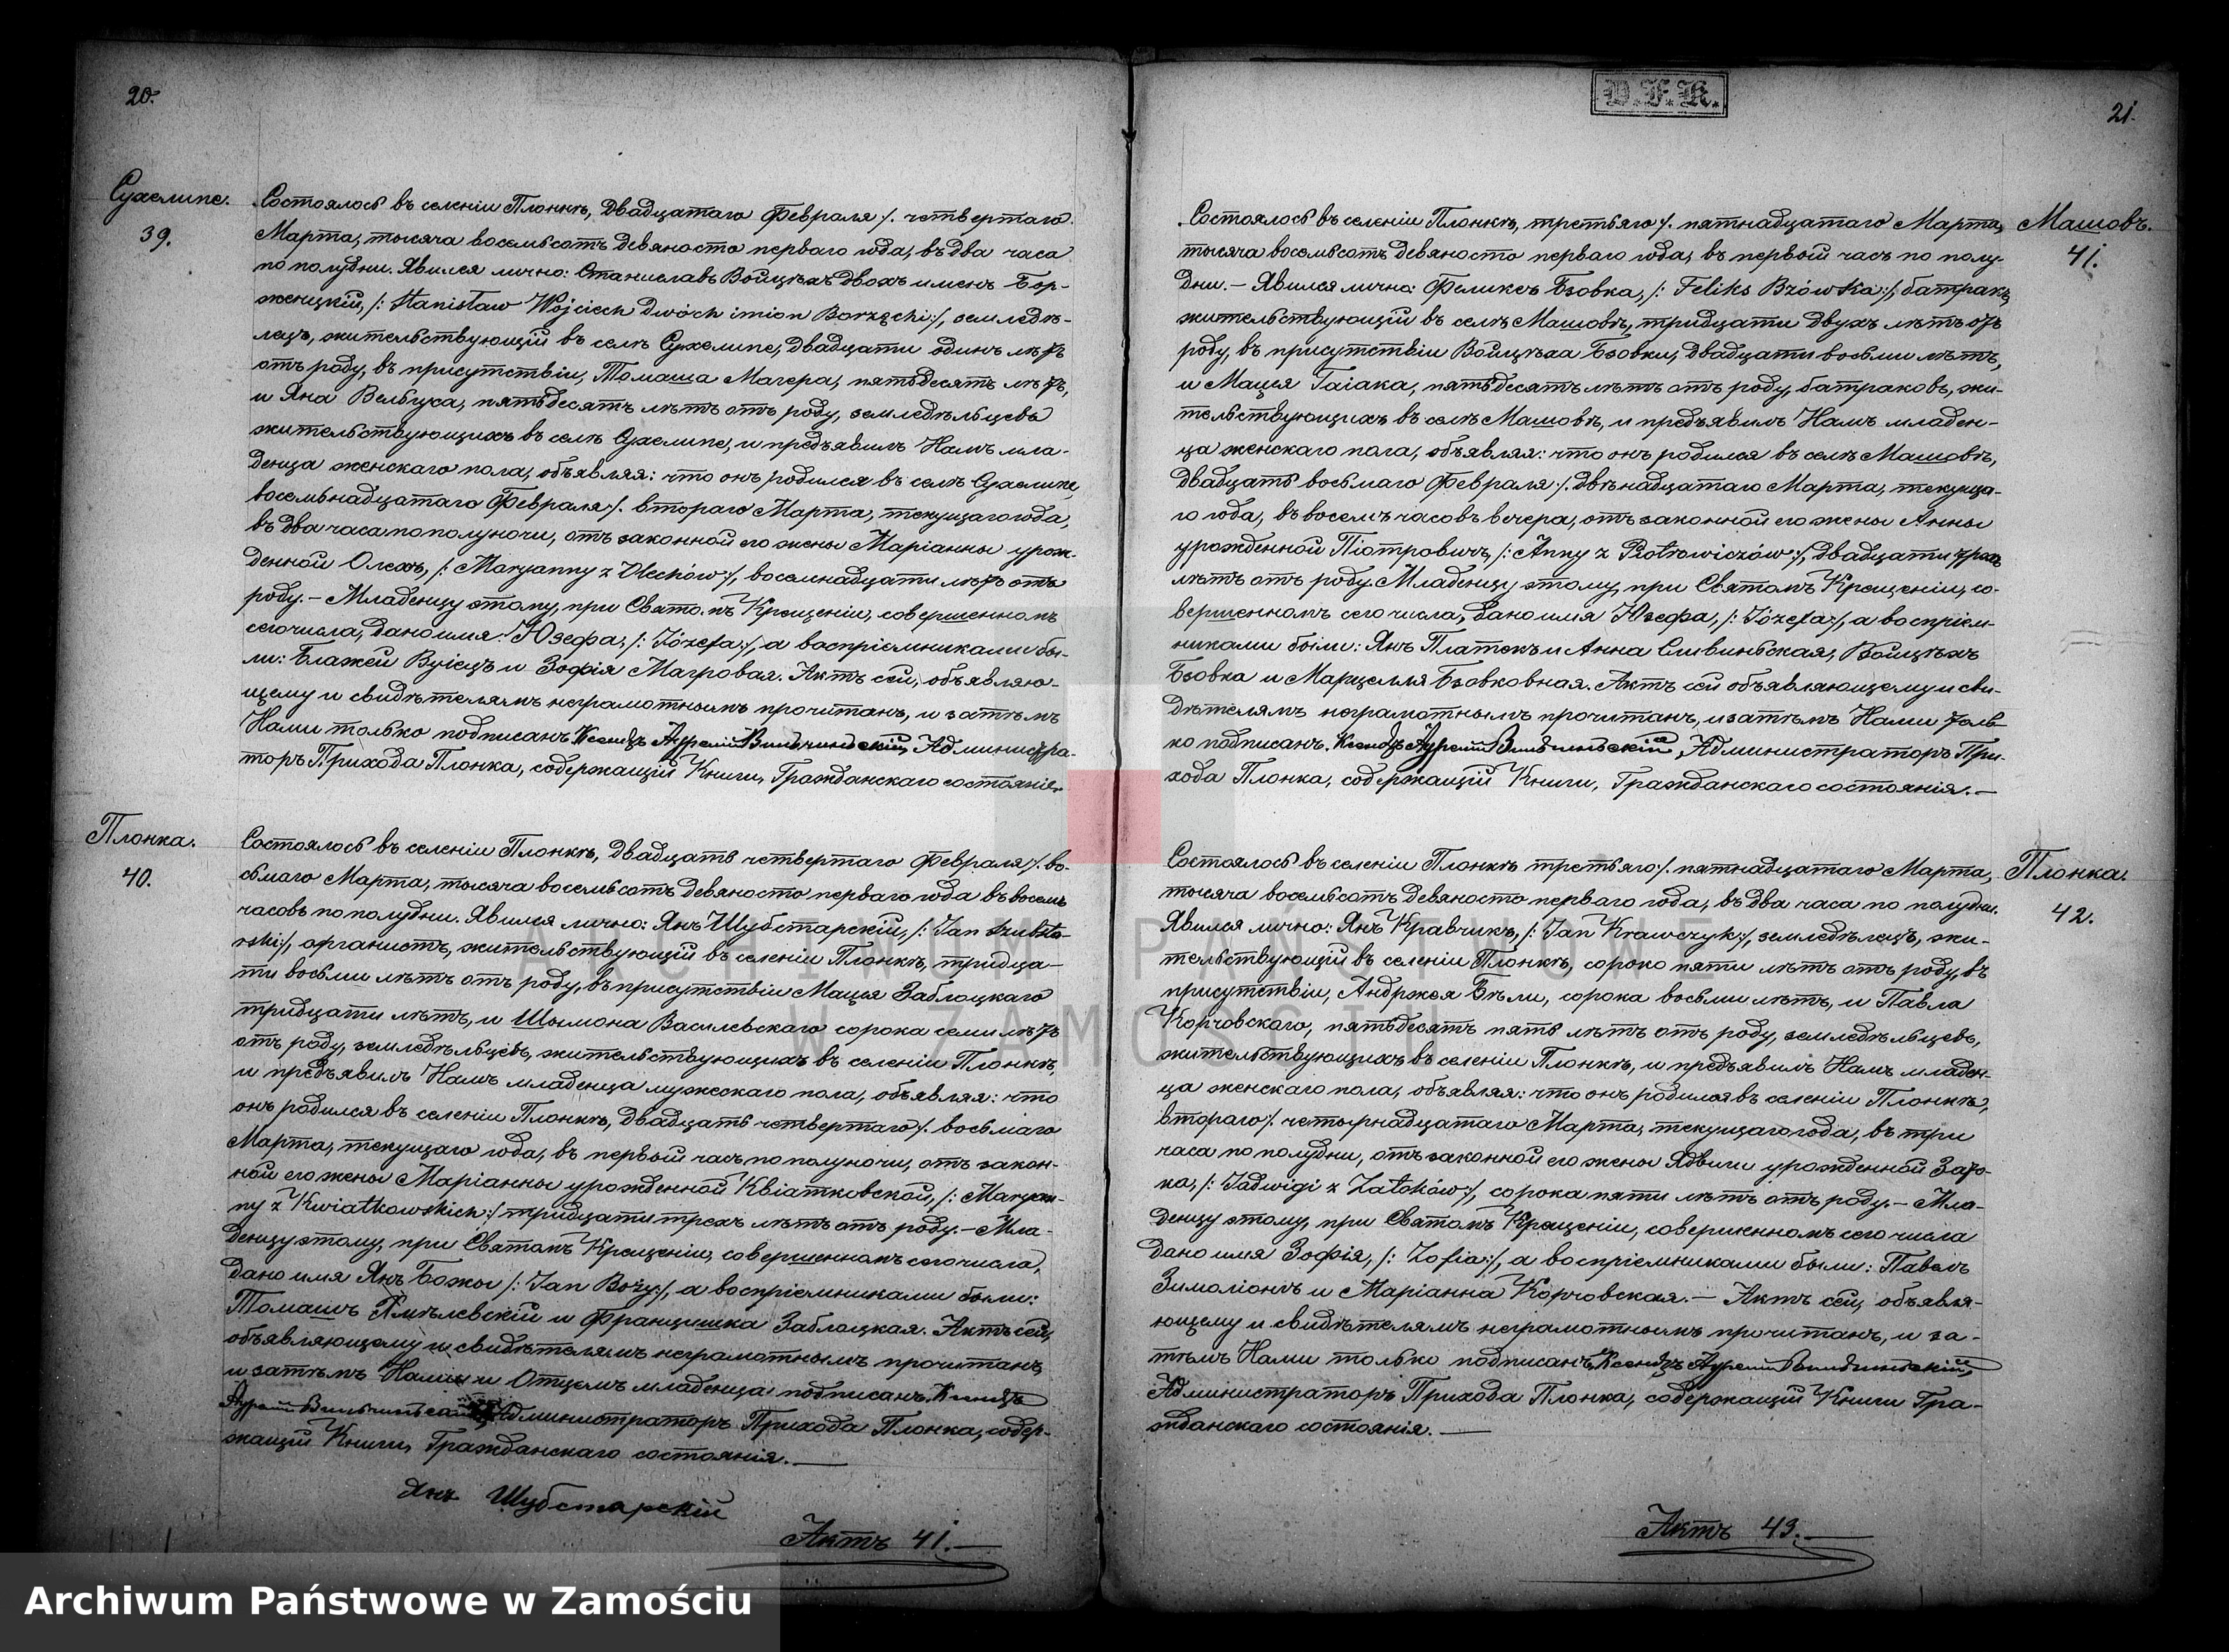 20.
Сухелипе.
39.
Состоялось въ селеніи Плонкѣ, двадцатаго Февраля /. четвертаго
Марта, тысяча восемьсотъ девяносто перваго года, въ два часа
по полудни. Явился лично: Станиславъ Войцѣхъ двохъ именъ Бор-
женцкій, /: Stanisław Wojciech dwóch imion Borzęcki :/, земледѣ-
лецъ, жительствующій въ селѣ Сухелипе, двадцати одинъ лѣтъ
отъ роду, въ присутствіи, Томаша Магера, пятьдесятъ лѣтъ,
и Яна Вельгуса, пятьдесятъ лѣтъ отъ роду, земледѣльцевъ
жительствующихъ въ селѣ Сухелипе, и предъявилъ Намъ мла-
денца женскаго пола, объявляя: что онъ родился въ селѣ Сухелипе,
восемьнадцатаго Февраля /. втораго Марта, текущаго года,
въ два часа по полуночи, отъ законной его жены Маріанны урож-
денной Олехъ, /: Maryanny z Olechów :/, восемнадцати лѣтъ отъ
роду. — Младенцу этому, при Святомъ Крещеніи, совершенномъ
сего числа, дано имя Юзефа, /: Józefa :/, а воспріемниками бы-
ли: Блажей Вуіецъ и Зофія Магровая. Актъ сей, объявляю-
щему и свидѣтелямъ неграмотнымъ прочитанъ, и затѣмъ
Нами только подписанъ. Ксендзъ Администра-
торъ Прихода Плонка, содержащій Книги, Гражданскаго состоянія.
Плонка.
40.
Состоялось въ селеніи Плонкѣ, двадцать четвертаго Февраля /. во-
сьмаго Марта, тысяча восемьсотъ девяносто перваго года въ восемь
часовъ по полудни. Явился лично: Янъ Шубстарскій, /: Jan Szubsta-
rski :/, органистъ, жительствующій въ селеніи Плонкѣ, тридца-
ти восьми лѣтъ отъ роду, въ присутствіи Мацея Заблоцкаго
тридцати лѣтъ, и Шымона Василевскаго сорока семи лѣтъ
отъ роду, земледѣльцевъ, жительствующихъ въ селеніи Плонкѣ,
и предъявилъ Намъ младенца мужескаго пола, объявляя: что
онъ родился въ селеніи Плонкѣ, двадцать четвертаго /. восьмаго
Марта, текущаго года, въ первый часъ по полуночи, отъ закон-
ной его жены Маріанны урожденной Квіатковской, /: Maryan-
ny z Kwiatkowskich :/ тридцати трехъ лѣтъ отъ роду. — Мла-
денцу этому, при Святомъ Крещеніи, совершенномъ сего числа,
дано имя Янъ Божы /: Jan Boży :/, а воспріемниками были:
Томашъ и Францишка Заблоцкая. Актъ сей,
объявляющему и свидѣтелямъ неграмотнымъ прочитанъ,
и затѣмъ Нами и Отцемъ младенца подписанъ. Ксендзъ
Администраторъ Прихода Плонка, содер-
жащій Книги, Гражданскаго состоянія. —
Янъ Шубстарскій
Актъ 41. —
D.F.K.
21.
Машовъ.
41.
Состоялось въ селеніи Плонкѣ, третьяго /. пятнадцатаго Марта,
тысяча восемьсотъ девяносто перваго года, въ первый часъ по полу-
дни. — Явился лично: Феликсъ Бзовка, /: Feliks Bzówka :/, батракъ
жительствующій въ селѣ Машовѣ, тридцати двухъ лѣтъ отъ
роду, въ присутствіи Войцѣха Бзовки, двадцати восьми лѣтъ,
и Мацея Гаіака, пятьдесятъ лѣтъ отъ роду, батраковъ, жи-
тельствующихъ въ селѣ Машовѣ, и предъявилъ Намъ младен-
ца женскаго пола, объявляя: что онъ родился въ селѣ Машовѣ,
двадцать восьмаго Февраля /. двѣнадцатаго Марта, текуща-
го года, въ восемъ часовъ вечера, отъ законной его жены Анны
урожденной Піотровичъ, /: Anny z Piotrowiczów :/, двадцати трехъ
лѣтъ отъ роду. Младенцу этому, при Святомъ Крещеніи, со-
вершенномъ сего числа, дано имя Юзефа, /: Józefa :/, а воспріем-
никами были: Янъ Платекъ и Анна Сливиньская, Войцѣхъ
Бзовка и Марцелля Бзовковная. Актъ сей объявляющему и сви-
дѣтелямъ неграмотнымъ прочитанъ, и затѣмъ Нами толь-
ко подписанъ. Ксендзъ Администраторъ При-
хода Плонка, содержащій Книги, Гражданскаго состоянія. —
Плонка.
42.
Состоялось въ селеніи Плонкѣ третьяго /. пятнадцатаго Марта,
тысяча восемьсотъ девяносто перваго года, въ два часа по полудни.
Явился лично: Янъ Кравчикъ, /: Jan Krawczyk :/, земледѣлецъ, жи-
тельствующій въ селеніи Плонкѣ, сороко пяти лѣтъ отъ роду, въ
присутствіи, Андржея Бѣли, сорока восьми лѣтъ, и Павла
Корчовскаго, пятьдесятъ пять лѣтъ отъ роду, земледѣльцевъ,
жительствующихъ въ селеніи Плонкѣ, и предъявилъ Намъ младен-
ца женскаго пола, объявляя: что онъ родился въ селеніи Плонкѣ,
втораго /. четырнадцатаго Марта, текущаго года, въ три
часа по полудни, отъ законной его жены Ядвиги урожденной Зато-
ка, /: Jadwigi z Zatoków :/, сорока пяти лѣтъ отъ роду. — Мла-
денцу этому, при Святомъ Крещеніи, совершенномъ сего числа
дано имя Зофія, /: Zofia :/, а воспріемниками были: Павелъ
Зимоліонгъ и Маріанна Корчовская. — Актъ сей, объявля-
ющему и свидѣтелямъ неграмотнымъ прочитанъ, и за-
тѣмъ Нами только подписанъ. Ксендзъ
Администраторъ Прихода Плонка, содержащій Книги Гра-
жданскаго состоянія. —
Актъ 43. —
ARCHIWUM PAŃSTWOWE
W ZAMOŚCIU
Archiwum Państwowe w Zamościu